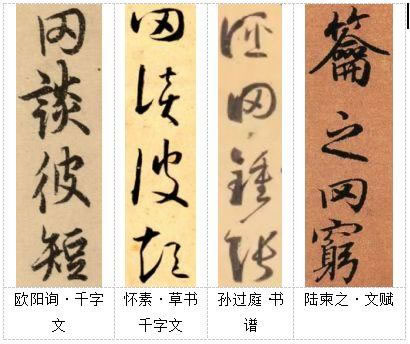 罔談彼短
罔談彼短
誣罔鍾張
籥之罔窮
欧阳询·千字
文
怀素·草书
千字文
孙过庭·书
谱
陆柬之·文赋